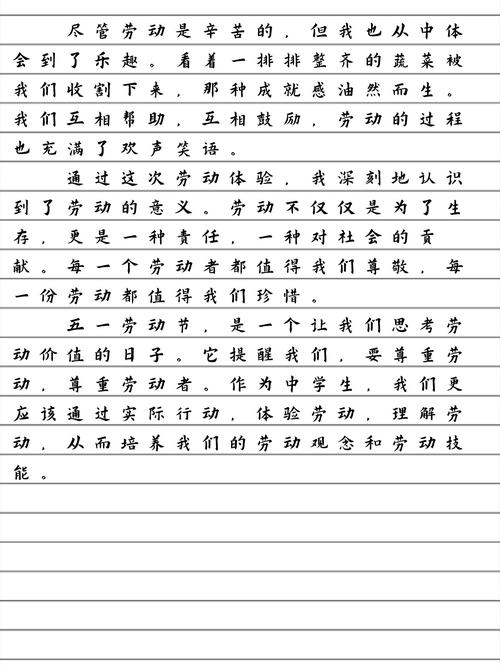 尽管劳动是辛苦的，但我也从中体
会到了乐趣。看着一排排整齐的蔬菜被
我们收割下来，那种成就感油然而生。
我们互相帮助，互相鼓励，劳动的过程
也充满了欢声笑语。
通过这次劳动体验，我深刻地认识
到了劳动的意义。劳动不仅仅是为了生
存，更是一种责任，一种对社会的贡
献。每一个劳动者都值得我们尊敬，每
一份劳动都值得我们珍惜。
五一劳动节，是一个让我们思考劳
动价值的日子。它提醒我们，要尊重劳
动，尊重劳动者。作为中学生，我们更
应该通过实际行动，体验劳动，理解劳
动，从而培养我们的劳动观念和劳动技
能。